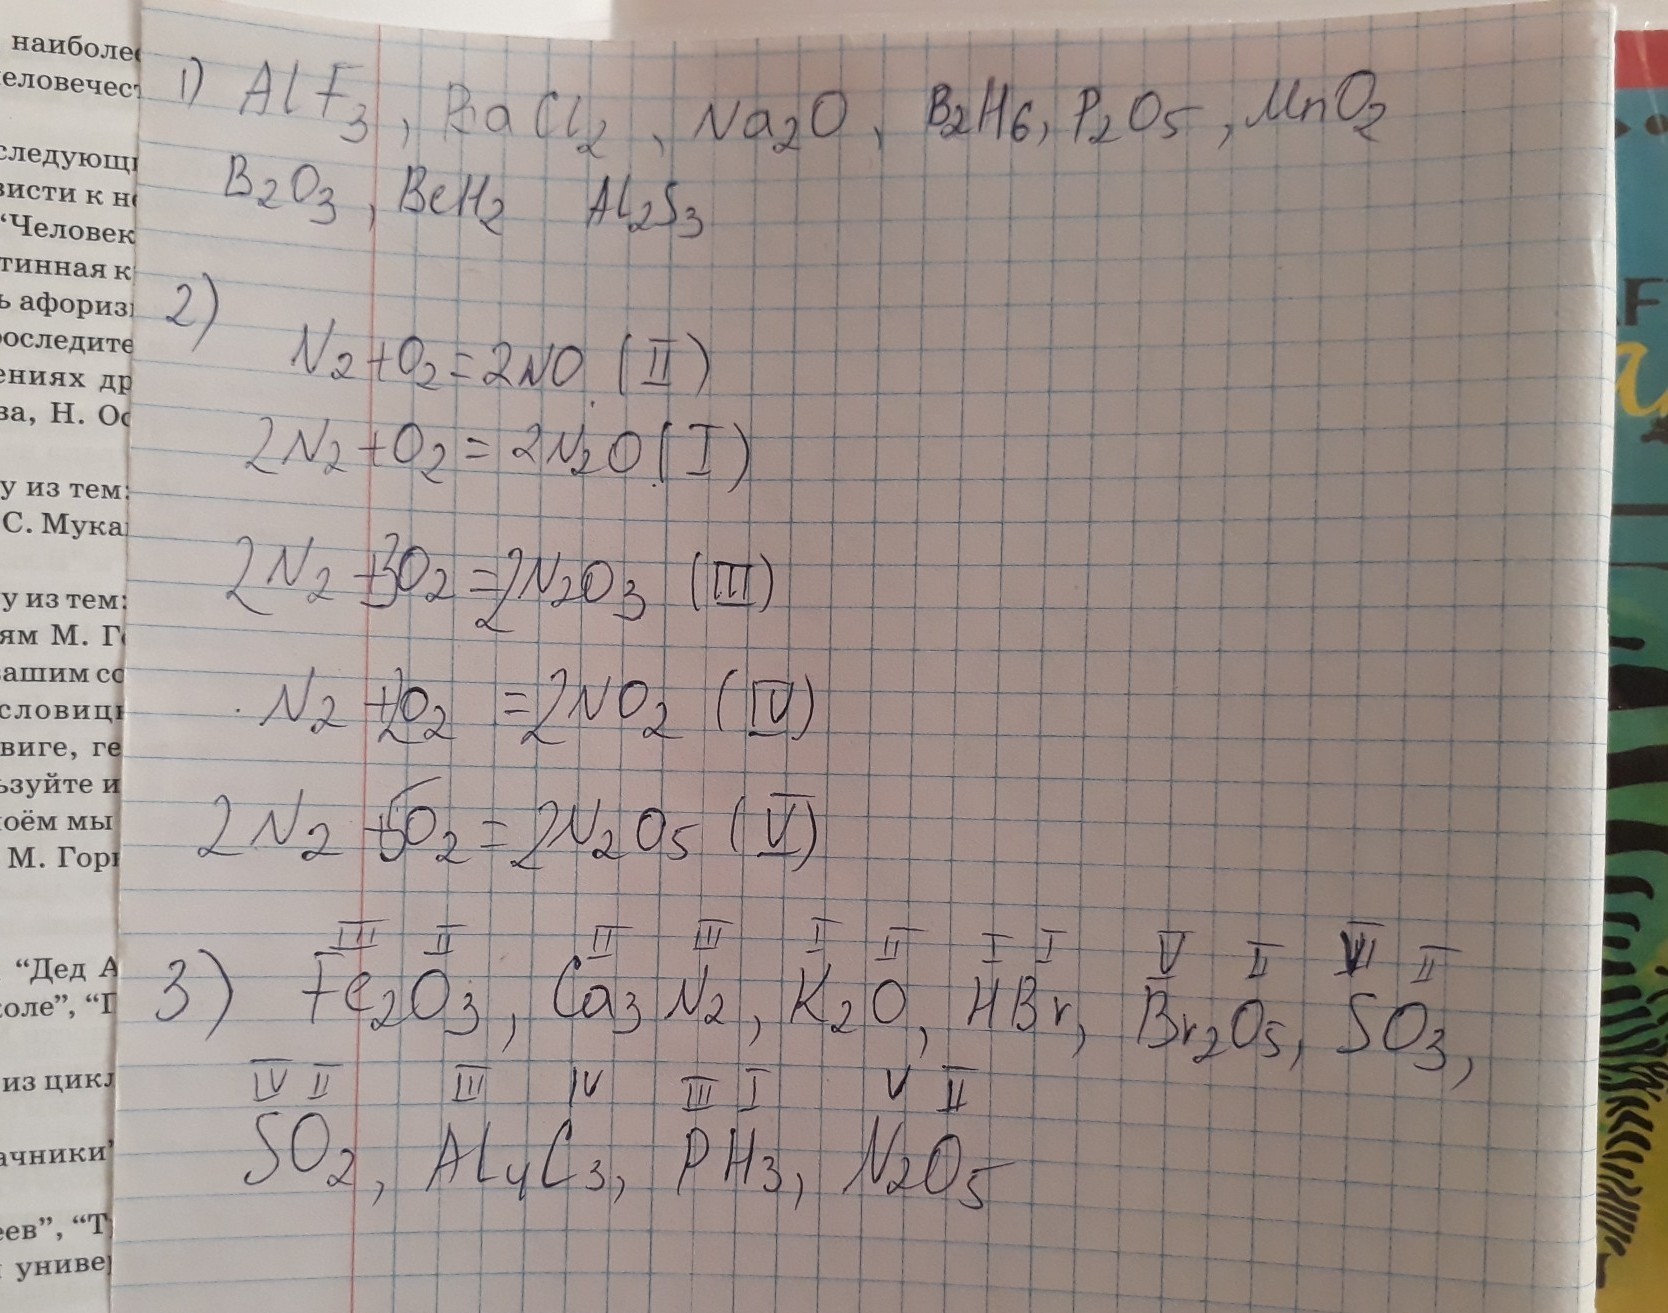 наиболе
человечест
следующи
вести к н
“Человек
тинная к
ь афориз
роследите
ениях др
ва, Н. Ос
у из тем:
С. Мука
у из тем:
ям М. Г
вашим со
словиц
виге, ге
ьзуйте и
моём мы
М. Горь
“Дед А
оле”, “
из цикл
ачники”
еев”, “Т
универ
1) AlF3, BaCl2, Na2O, B2H6, P2O5, MnO2
B2O3, BeH2 Al2S3
2)
N2+O2=2NO (II)
2N2+O2=2N2O(I)
2N2+3O2=2N2O3 (III)
N2+2O2=2NO2 (IV)
2N2+5O2=2N2O5 (V)
III II II III I II I I V II VI II
3) Fe2O3, Ca3N2, K2O, HBr, Br2O5, SO3,
IV II III IV III I V II
SO2, Al4C3, PH3, N2O5